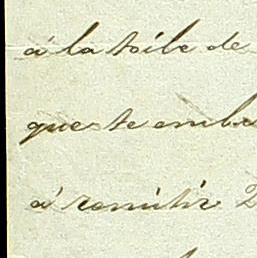 á la toile de
que se emba
á remitir 2